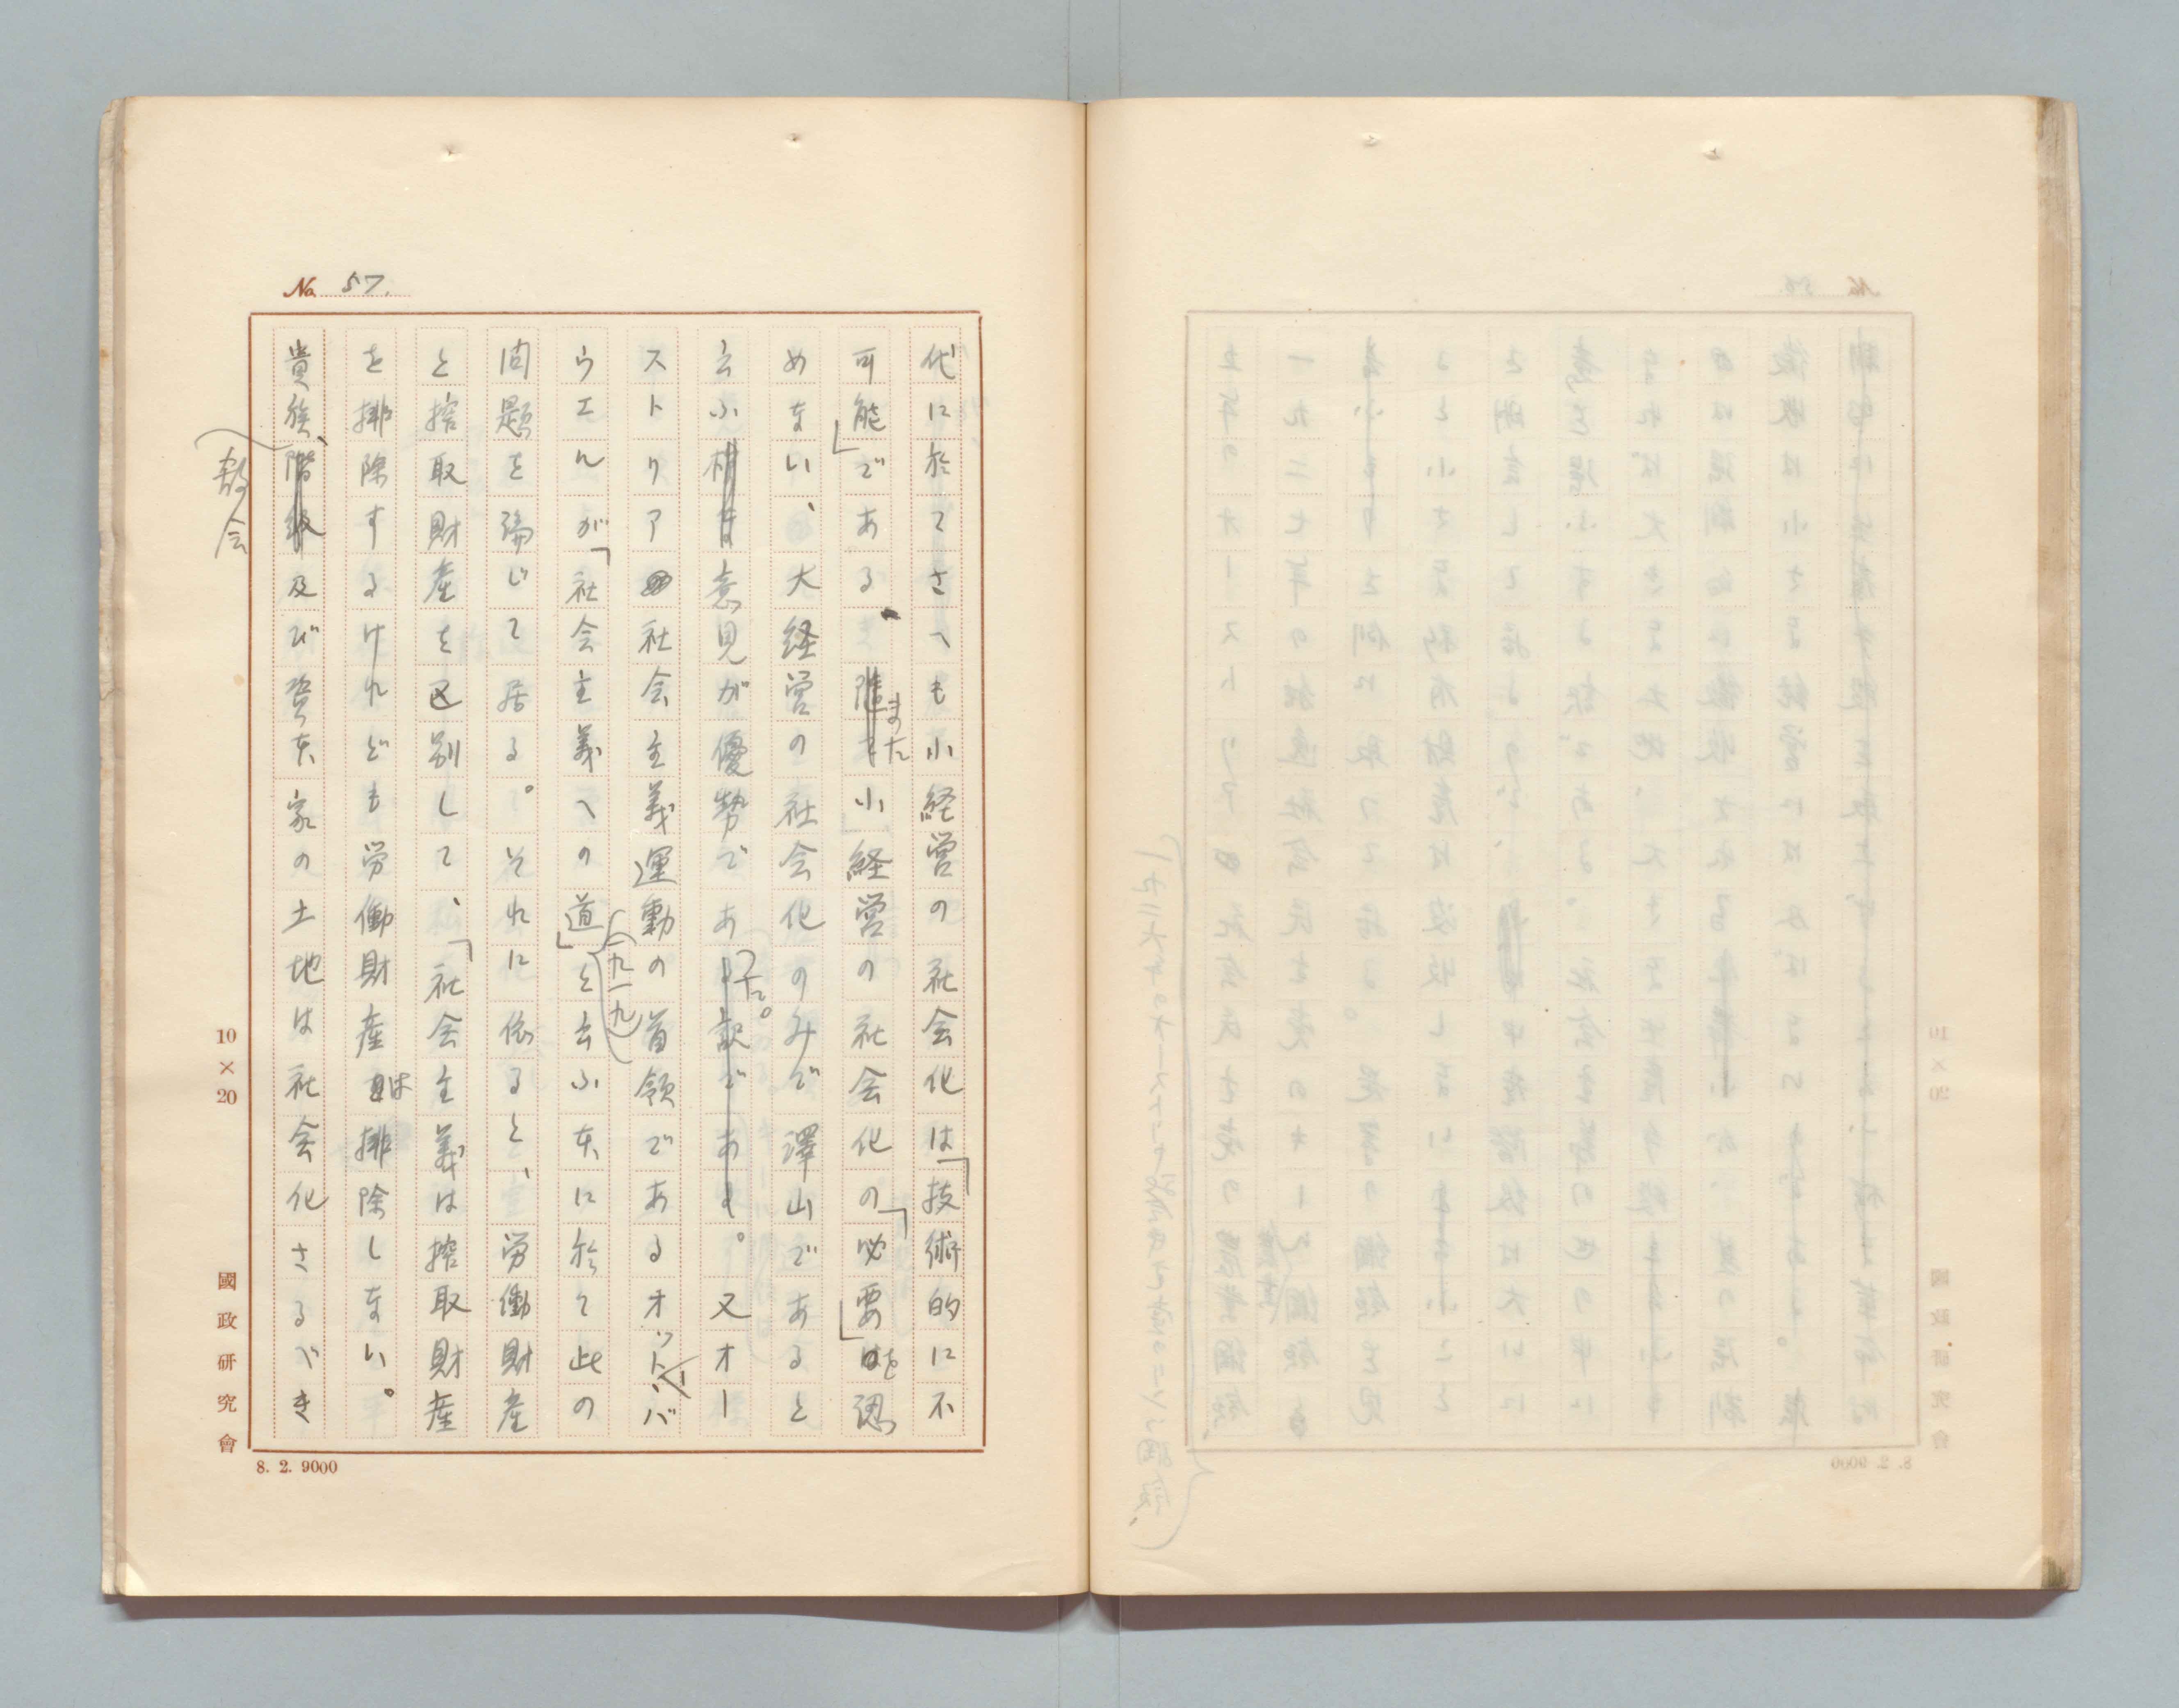 No. 57.
代に於てさへも小経営の社会化は「技術的に不
可能」である。また小経営の社会化の「必要」を認
めない、大経営の社会化のみで澤山であると
云ふ意見が優勢であつた。又オー
ストリア社会主義運動の首領であるオットー・バ
ウエルが「社会主義への道」(一九一九)と云ふ本に於て此の
問題を論じて居る。それに依ると、労働財産
と搾取財産を区別して、「社会主義は搾取財産
を排除するけれども労働財産は排除しない。
貴族、教会及び資本家の土地は社会化さるべき
10×20
國政研究會
8. 2. 9000